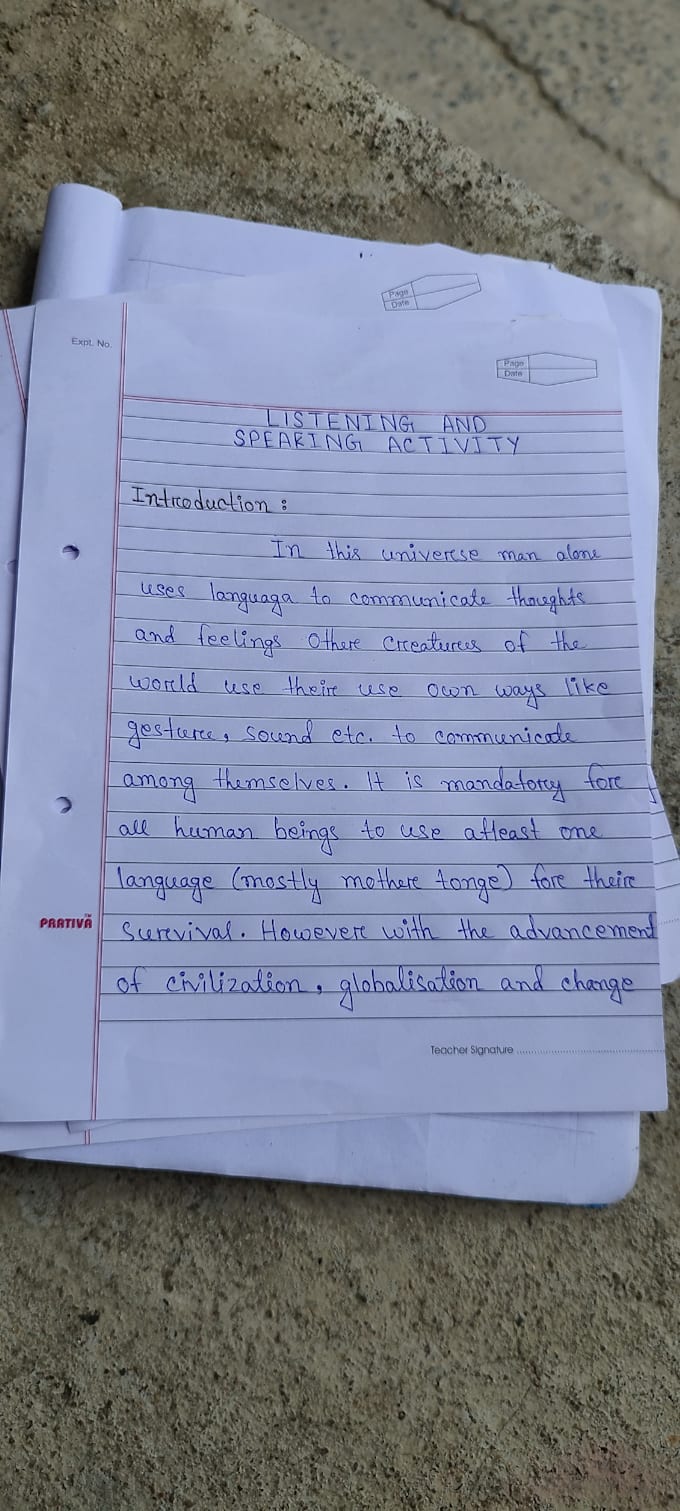 Page
Date
Expt. No.
Page
Date
LISTENING AND
SPEAKING ACTIVITY
Introduction :
In this universe man alone
uses languaga to communicate thoughts
and feelings Other Creatures of the
world use their use own ways like
gesture, sound etc. to communicate
among themselves. It is mandatory for
all human beings to use atleast one
language (mostly mother tonge) for their
Survival. However with the advancement
of civilization, globalisation and change
PRATIVA TM
Teacher Signature